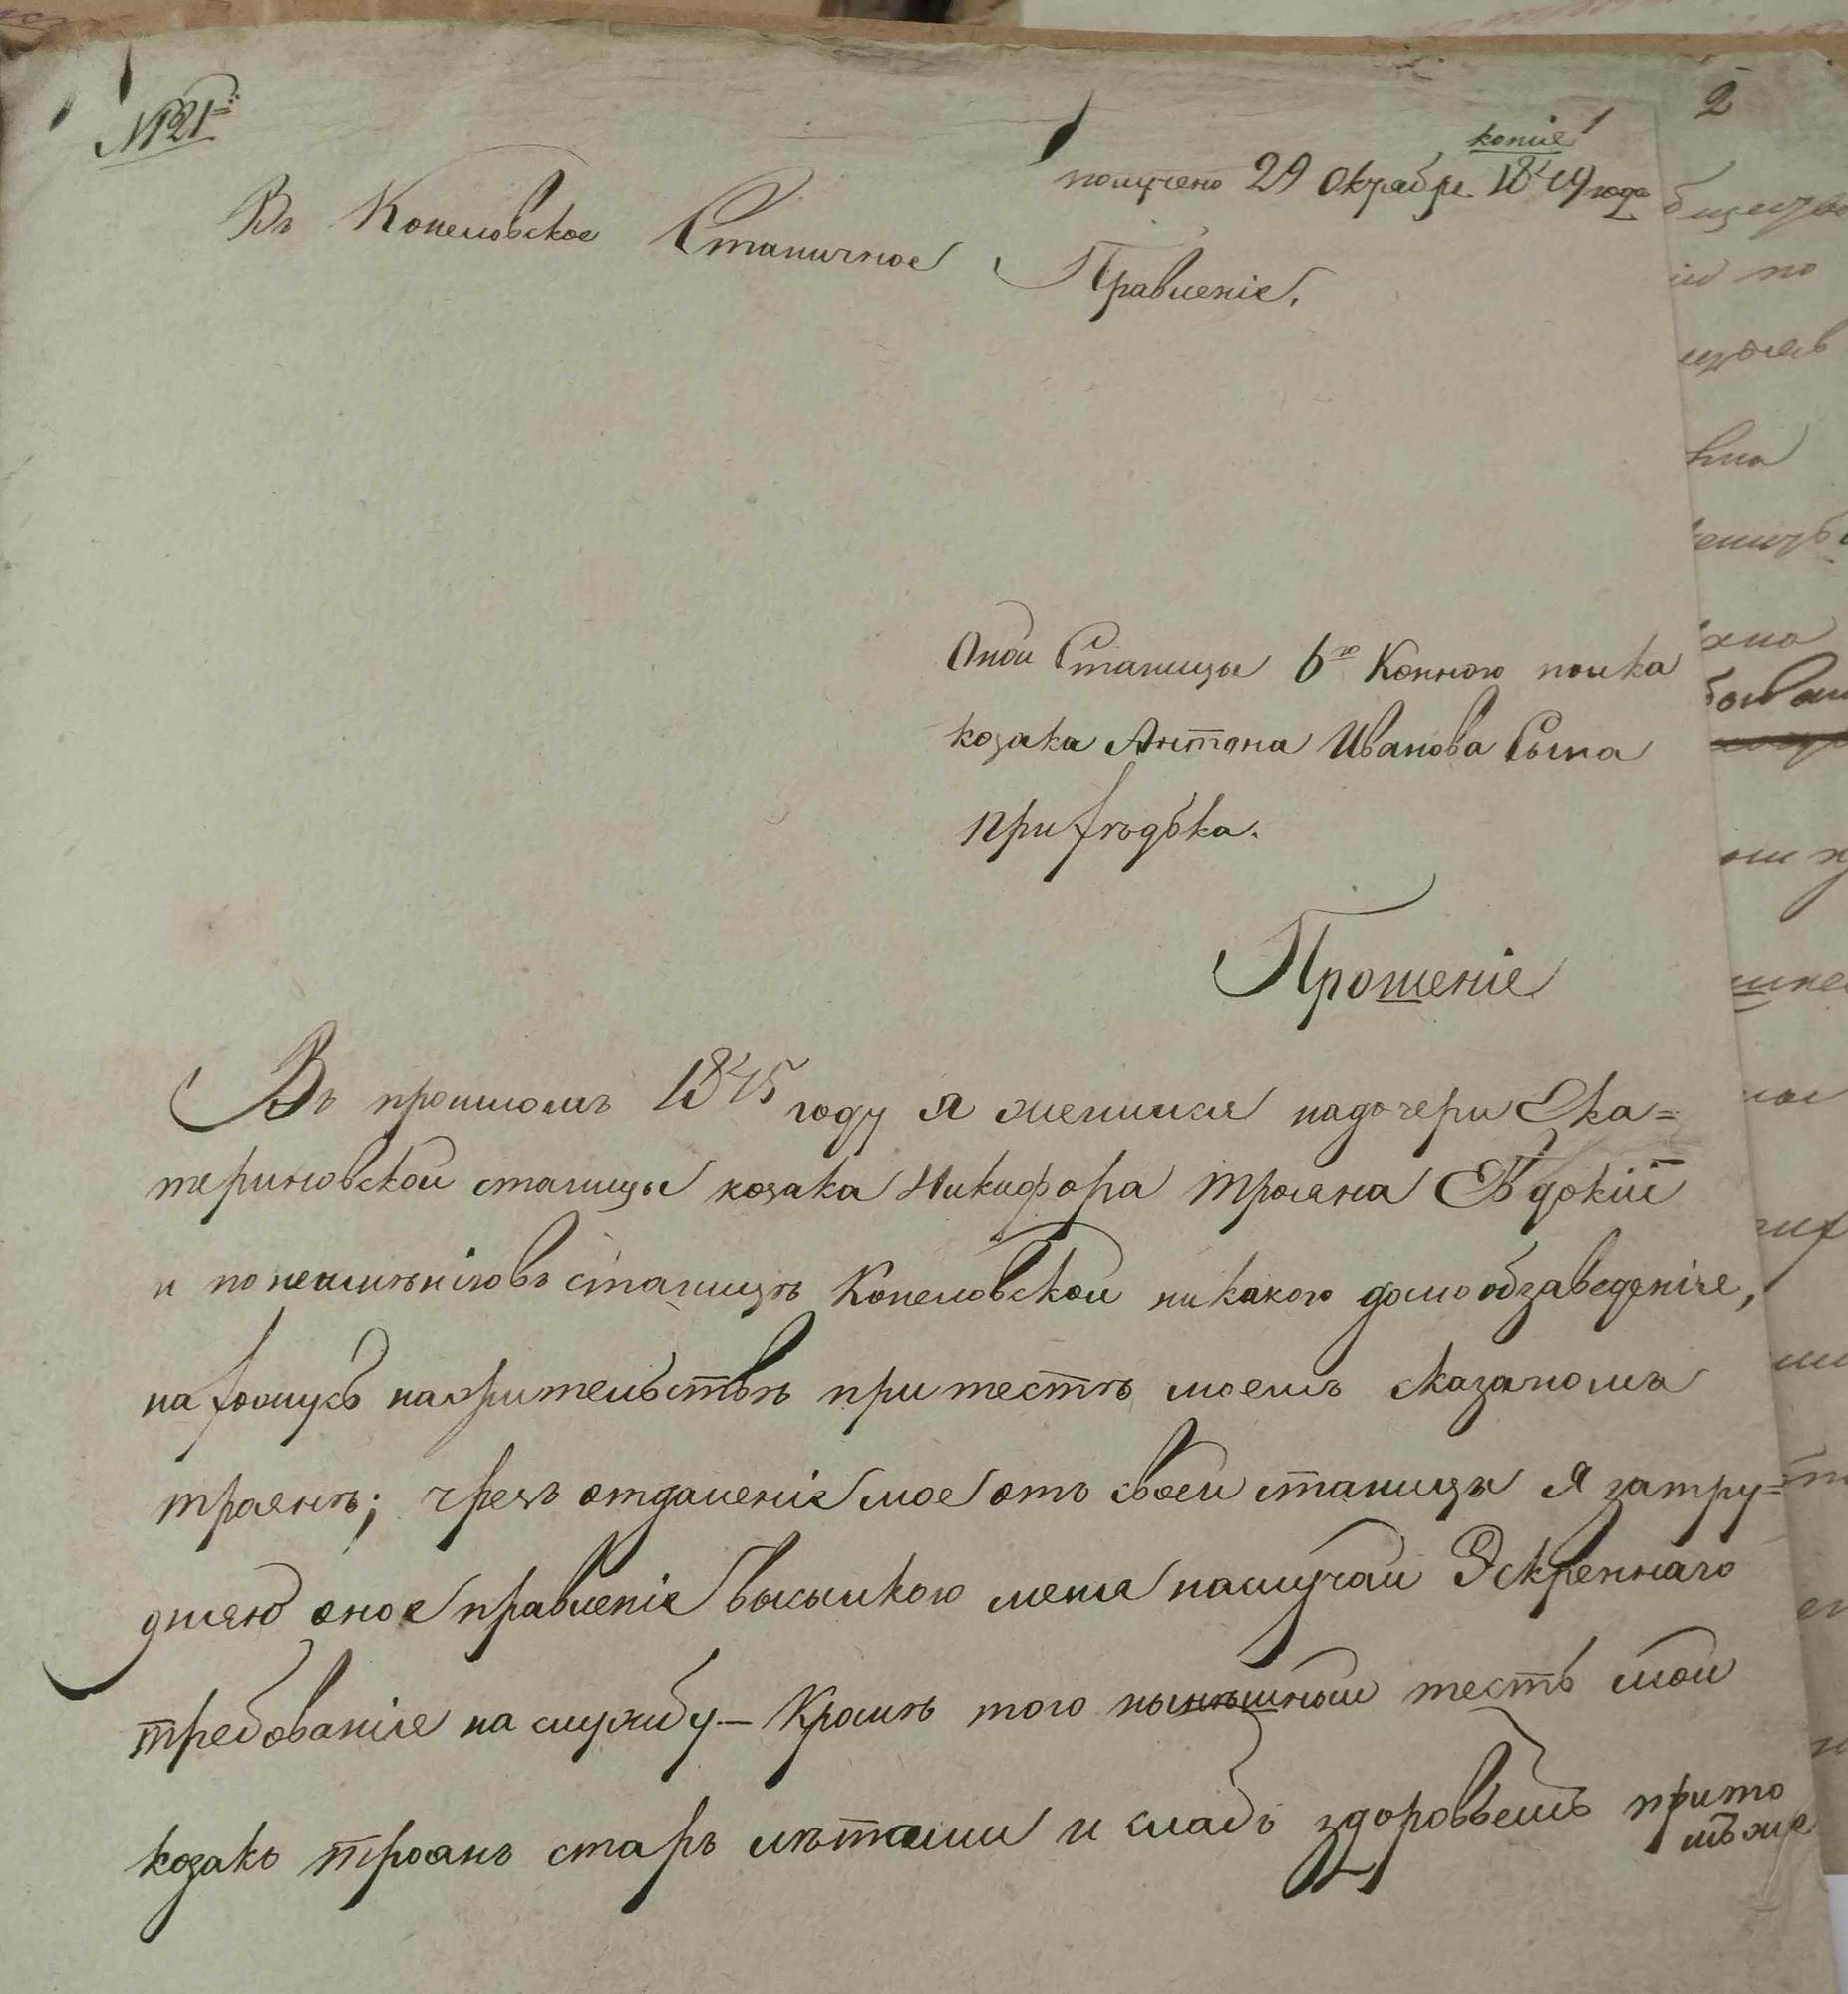 № 121
копіе
получено 29 Октября 1849 года
2
Въ Конеловское Станичное Правленіе.
Оной Станицы 6го Коннаго полка
козака Антона Иванова Сына
Присѣдька.
Прошеніе
Въ прошломъ 1845 году я женился надочери Ека=
териновской станицы козака Никифора трояна Евдокіи
и понеимѣніювъ станицѣ Конеловской никакого домообзаведенія,
нахожусь нажительствѣ притестѣ моемъ сказаномъ
троянѣ; чрезъ отдаленіе мое отъ своей станицы я затру=
дняю оное правленіе высылкою меня наслучай Эскреннаго
требованія на службу – Кромѣ того нынѣшный тесть мой
козакъ троянъ старъ лѣтами и слабъ здоровьемъ прито
мъже